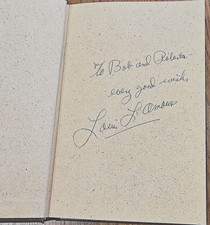 To Bob and Roberta
every good wish,
Louis L'Amour